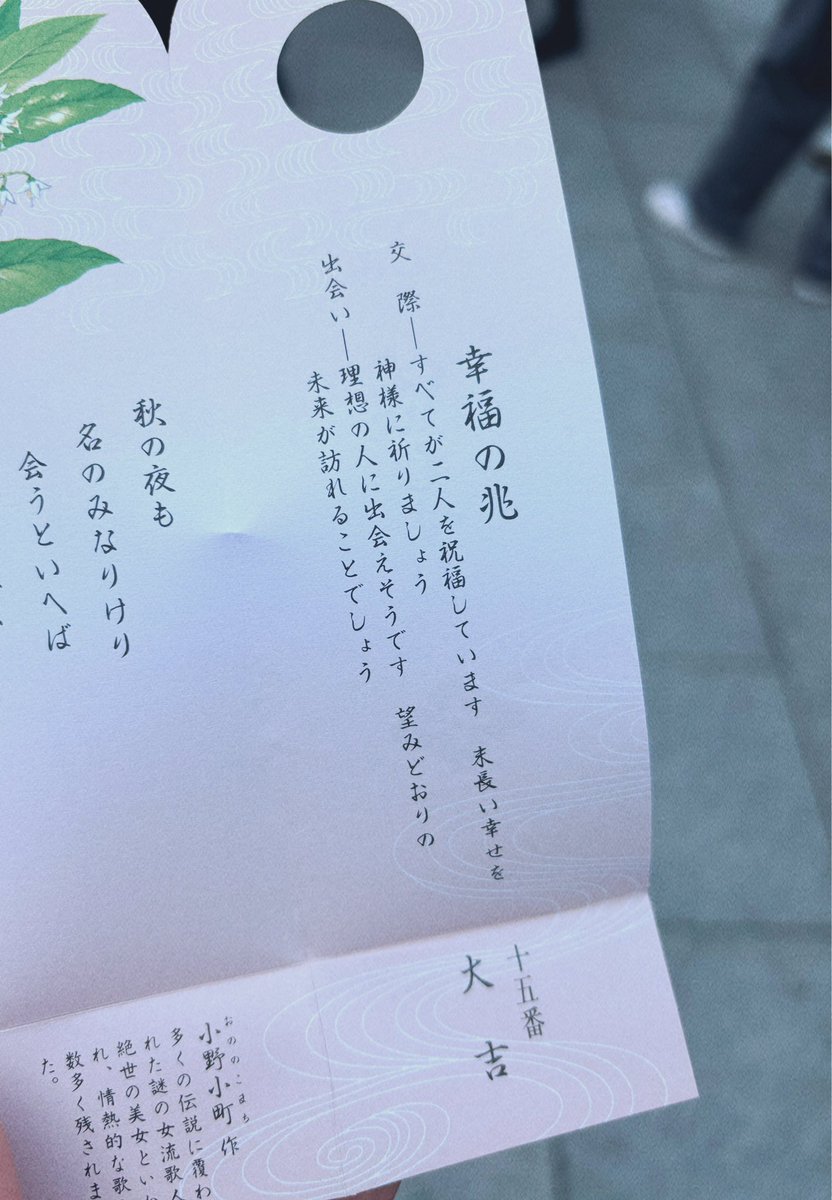 幸福の兆
交際―すべてが二人を祝福しています 末長い幸せを
神様に祈りましょう
出会い―理想の人に出会えそうです 望みどおりの
未来が訪れることでしょう
秋の夜も
名のみなりけり
会うといへば
十五番
大吉
おののこまち
小野小町 作
多くの伝説に覆わ
れた謎の女流歌人
絶世の美女とい
れ、情熱的な歌
数多く残されま
た。